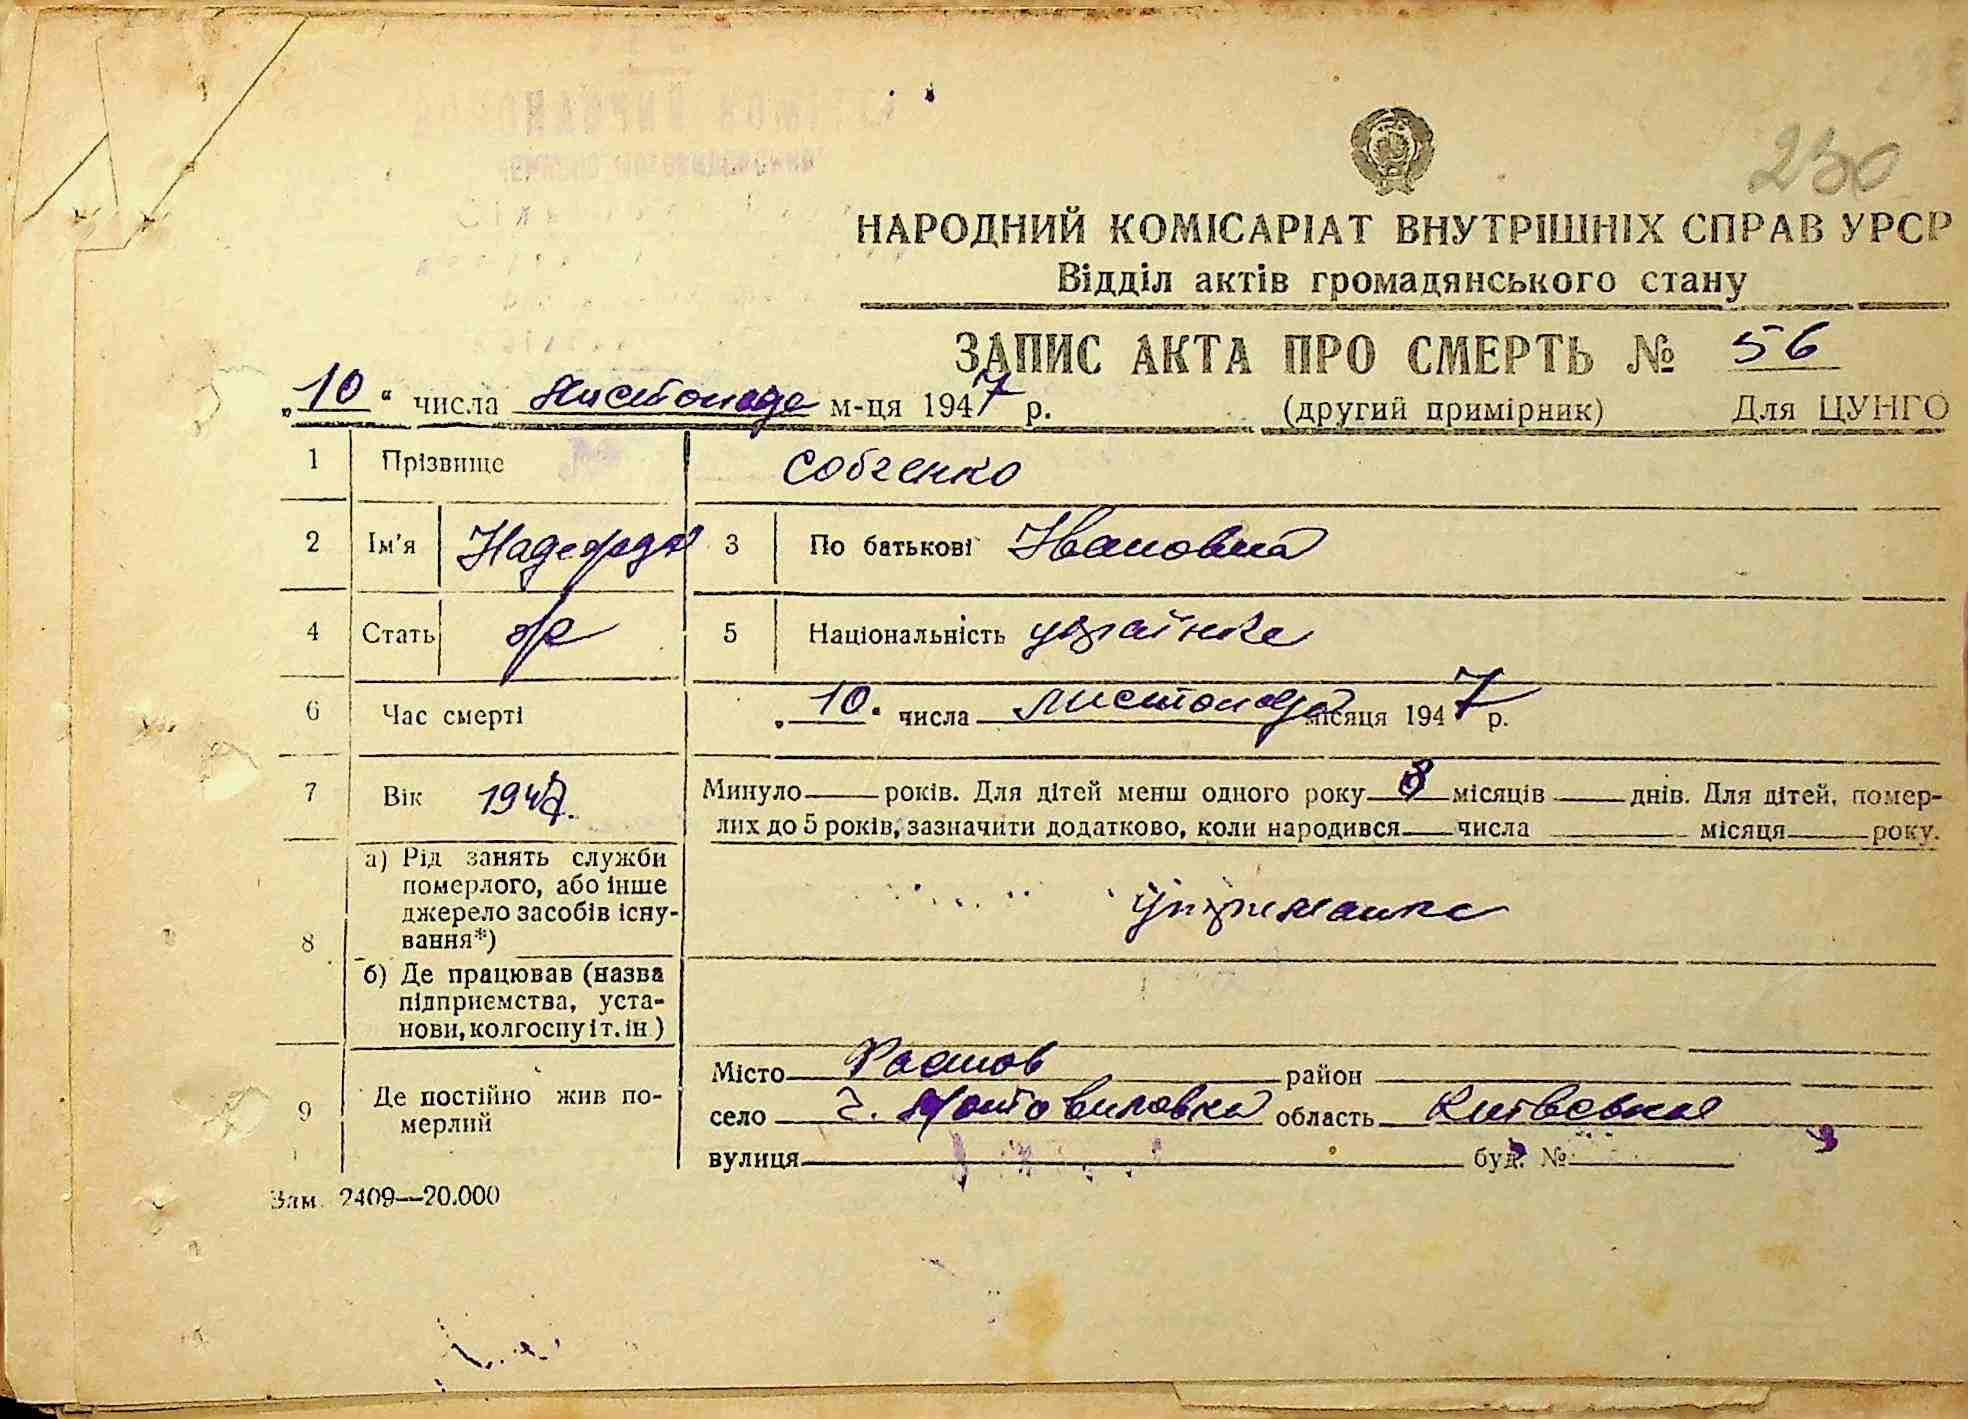 230
НАРОДНИЙ КОМІСАРІАТ ВНУТРІШНІХ СПРАВ УРСР
Відділ актів громадянського стану
ЗАПИС АКТА ПРО СМЕРТЬ № 56
„10“ числа листопада м-ця 1947 р. (другий примірник) Для ЦУНГО
1 Прізвище Собченко
2 Ім'я Надежда 3 По батькові Ивановна
4 Стать ж 5 Національність українка
6 Час смерті „10“ числа листопада місяця 1947 р.
7 Вік 1947. Минуло років. Для дітей менш одного року 8 місяців днів. Для дітей, помер-
лих до 5 років, зазначити додатково, коли народився числа місяця року.
8 а) Рід занять служби
померлого, або інше
джерело засобів існу-
вання*) утриманка
б) Де працював (назва
підприємства, уста-
нови, колгоспу і т. ін.)
9 Де постійно жив по-
мерлий
Місто Фастов район
село с. Мотовиловка область Київська
вулиця буд. №
Зам. 2409—20.000